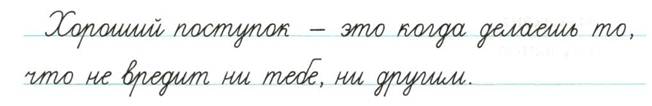 Хороший поступок – это когда делаешь то,
что не вредит ни тебе, ни другим.